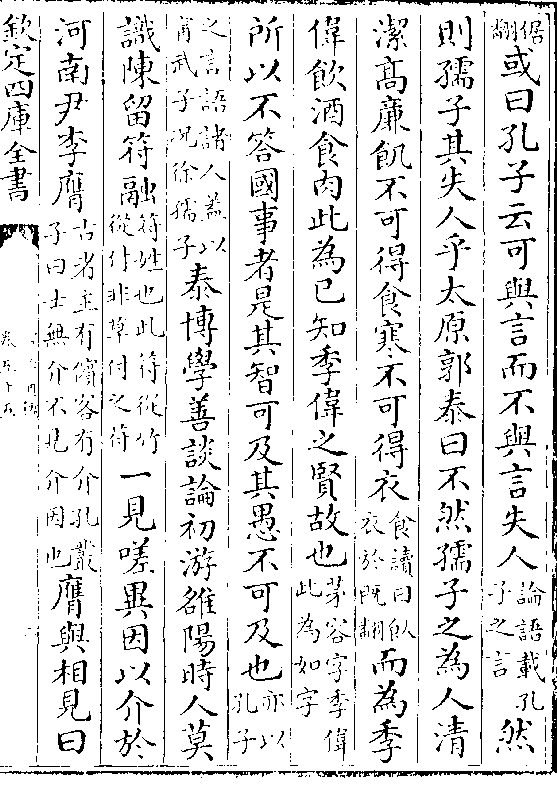 倨翻或曰孔子云可與言而不與言失人論語載孔子之言然
則孺子其失人乎太原郭泰曰不然孺子之為人清
潔高廉飢不可得食寒不可得衣食讀曰飤衣於既翻而為季
偉飲酒食肉此為已知季偉之賢故也茅容字季偉此為如字
所以不答國事者是其智可及其愚不可及也亦以孔子
之言語諸人蓋以甯武子况徐孺子泰博學善談論初游雒陽時人莫
識陳留符融符姓也此符從竹從付非草付之苻一見嗟異因以介於
河南尹李膺古者主有儐客有介孔叢子曰士無介不見介因也膺與相見曰
欽定四庫全書